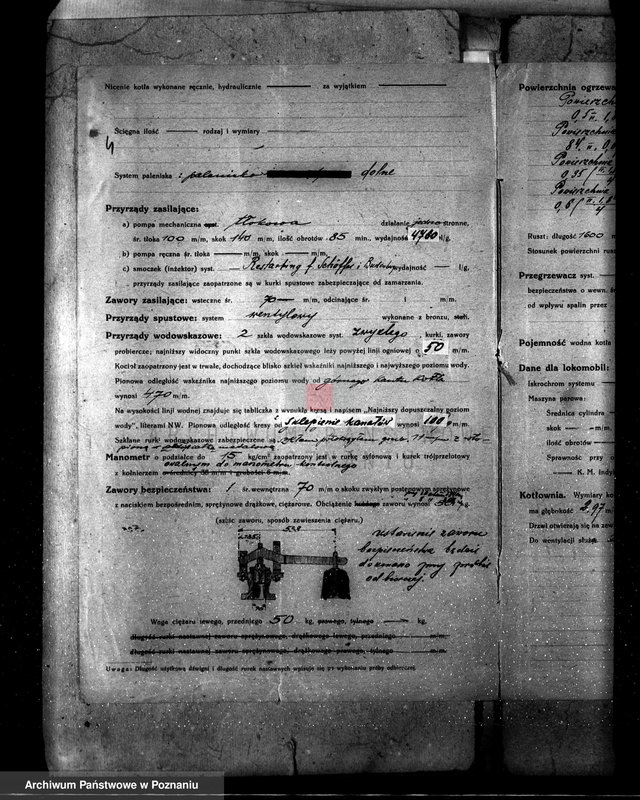 Nicenie kotła wykonane ręcznie, hydraulicznie za wyjątkiem
Ścięgna ilość rodzaj i wymiary
System paleniska : palenisko dolne
Przyrządy zasilające:
a) pompa mechaniczna syst. tłokowa działanie jednostronne,
śr. tłoka 100 m/m, skok 140 m/m, ilość obrotów 85 min., wydajność 4760 l/g.
b) pompa ręczna śr. tłoka m/m, skok m/m.
c) smoczek (inżektor) syst. Restarting f. Schäffer i Budenberg wydajność l/g.
przyrządy zasilające zaopatrzone są w kurki spustowe zabezpieczające od zamarzania.
Zawory zasilające: wsteczne śr. 70 m/m, odcinające śr. m/m.
Przyrządy spustowe: system wentylowy wykonane z bronzu, stali.
Przyrządy wodowskazowe: 2 szkła wodowskazowe syst. zwykłego, kurki, zawory
probiercze; najniższy widoczny punkt szkła wodowskazowego leży powyżej linji ogniowej o 50 m/m.
Kocioł zaopatrzony jest w trwałe, dochodzące blisko szkieł wskaźniki najniższego i najwyższego poziomu wody.
Pionowa odległość wskaźnika najniższego poziomu wody od górnego kantu kotła
wynosi 470 m/m.
Na wysokości linji wodnej znajduje się tabliczka z wypukłą kresą i napisem „Najniższy dopuszczalny poziom
wody", literami NW. Pionowa odległość kresy od sklepienie kanałów wynosi 100 m/m.
Szklane rurki wodowskazowe zabezpieczone są
Manometr o podziałce do 15 kg/cm² zaopatrzony jest w rurkę syfonową i kurek trójprzelotowy
z kołnierzem owalnym do manometru kontrolnego
o średnicy m/m i grubości m/m.
Zawory bezpieczeństwa: 1 śr. wewnętrzna 70 m/m o skoku zwykłym postępowym sprężynowe
z naciskiem bezpośrednim, sprężynowe drążkowe, ciężarowe. Obciążenie zaworu wynosi kg.
(szkic zaworu, sposób zawieszenia ciężaru.)
538
ustawienie zaworu
bezpieczeństwa będzie
dokonane przy gorącym
odbiorczej.
Waga ciężaru lewego, przedniego 50 kg, prawego, tylnego kg,
długość rurki nastawnej zaworu sprężynowego, drążkowego lewego, przedniego m/m.
długość rurki nastawnej zaworu sprężynowego, drążkowego prawego, tylnego m/m.
Uwaga: Długość użytkową dźwigni i długość rurek nastawnych wpisuje się po wykonaniu próby odbiorczej.
Powierzchnia ogrzewa
Powierzch
Powierzchnia
Powierzchnia
Powierzchnia
Ruszt: długość 1600 m
Stosunek powierzchni rusz
Przegrzewacz syst.
bezpieczeństwa o wewn. śr
od wpływu spalin przez
Pojemność wodna kotła
Dane dla lokomobil:
Iskrochron systemu
Maszyna parowa:
Średnica cylindra
skok m/m,
ilość obrotów
Sprawność przy o
K. M. Indyk
Kotłownia. Wymiary kot
ma głębokość 2,97 m
Drzwi otwierają się na zew
Do wentylacji służą
Archiwum Państwowe w Poznaniu